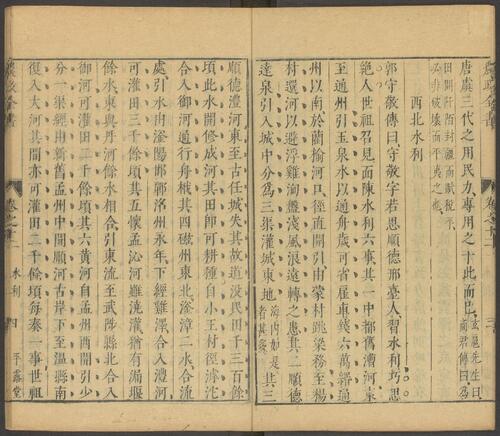 唐虞三代之用民力專用之于此而已玄扈先生曰商君傳曰爲
田開阡陌封疆而賦稅平
必非破壞而平夷之也
西北水利
郭守敬傳曰守敬字若思順德邢臺人習水利巧思
絶人世祖召見面陳水利六事其一中都舊漕河東
至通州引玉泉水以通舟歲可省雇車錢六萬緡通
州以南於藺榆河口徑直開引由蒙村跳梁務至楊
村還河以避浮雞洵盤淺風浪遠轉之患其二順德
達泉引入城中分爲三渠灌城東地海内如是其三者甚多
順德澧河東至古任城失其故道没民田千三百餘
頃此水開修成河其田即可耕種自小王村徑滹沱
合入御河通行舟栰其四磁州東北滏漳二水合流
處引水由滏陽邯鄲洺州永年下經雞澤合入澧河
可灌田三千餘頃其五懷孟沁河雖澆灌猶有漏堰
餘水東與丹河餘水相合引東流至武陟縣北合入
御河可灌田二千餘頃其六黃河自孟州西開引少
分一渠經由新舊孟州中間順河古岸下至温縣南
復入大河其間亦可灌田二千餘頃每奏一事世祖
農政全書
卷之十二
水利
四
平露堂